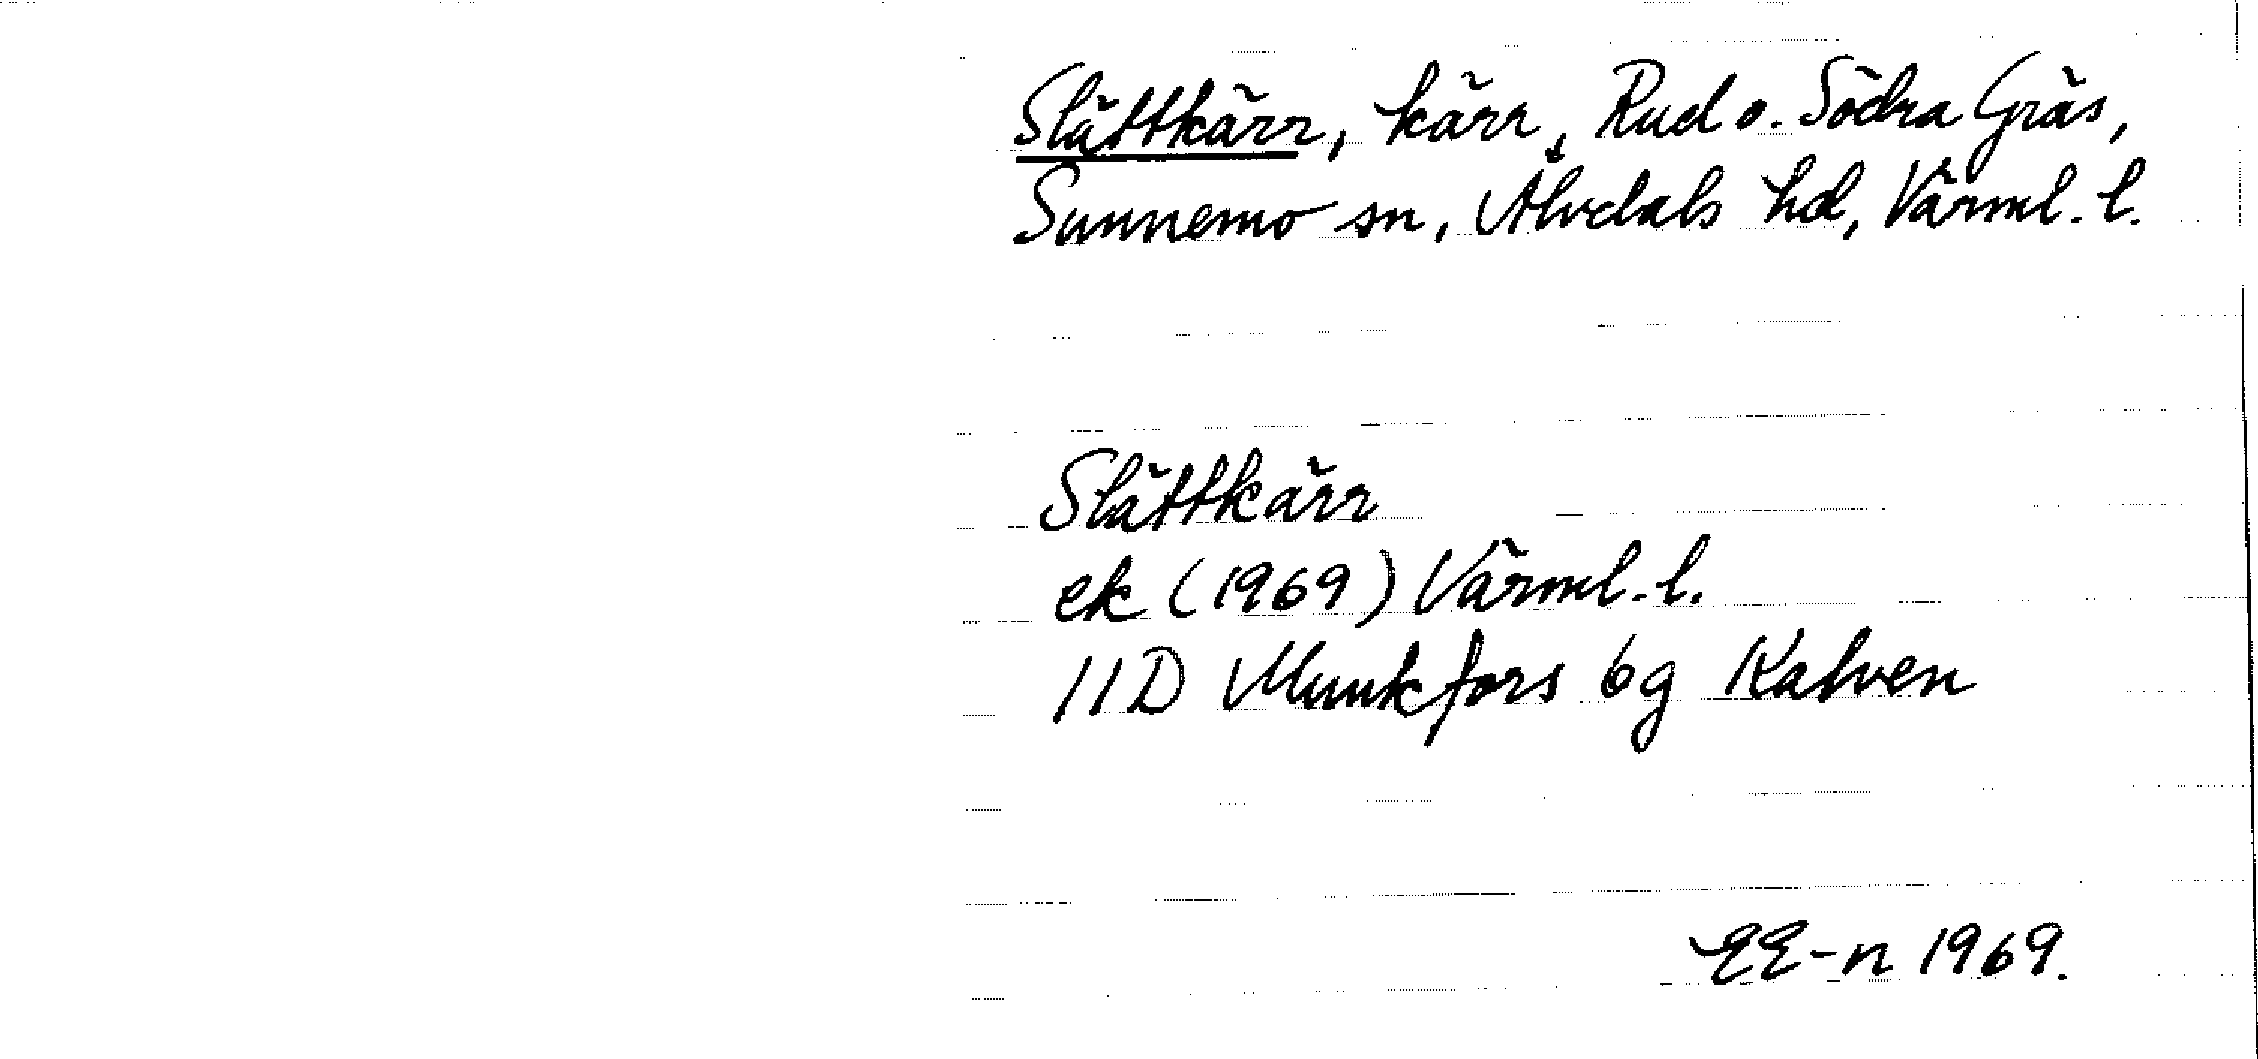 Slättkärr, kärr, Rud o. Södra Gräs,
Sunnemo sn, Älvdals hd, Värml. l.
Slättkärr
ek (1969) Värml. l.
11D Munkfors 6g Kalven
EE-n 1969.